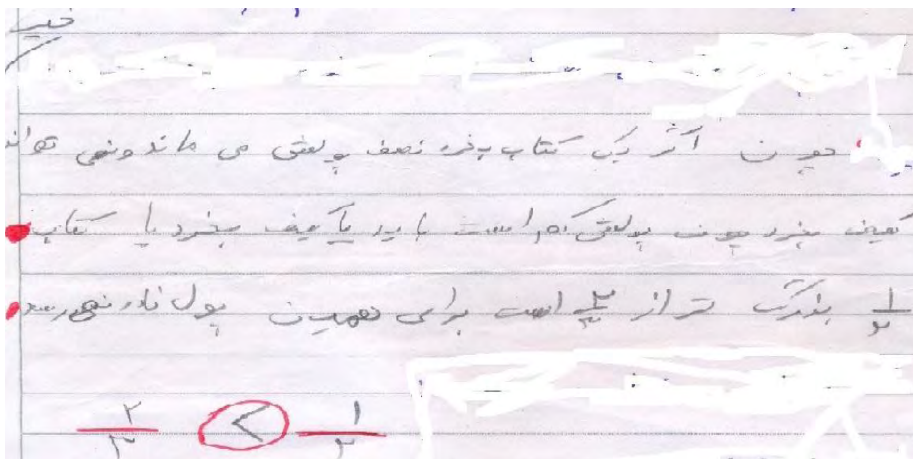 خیر
چون اگر یک کتاب بخرد نصف پولش می ماند و نمی تواند
کیف بخرد چون پولش کم است باید یا کیف بخرد یا کتاب
۱/۲ بزرگ تر از ۲/۳ است برای همین پول نادر نمی رسد
۲/۳ < ۱/۲